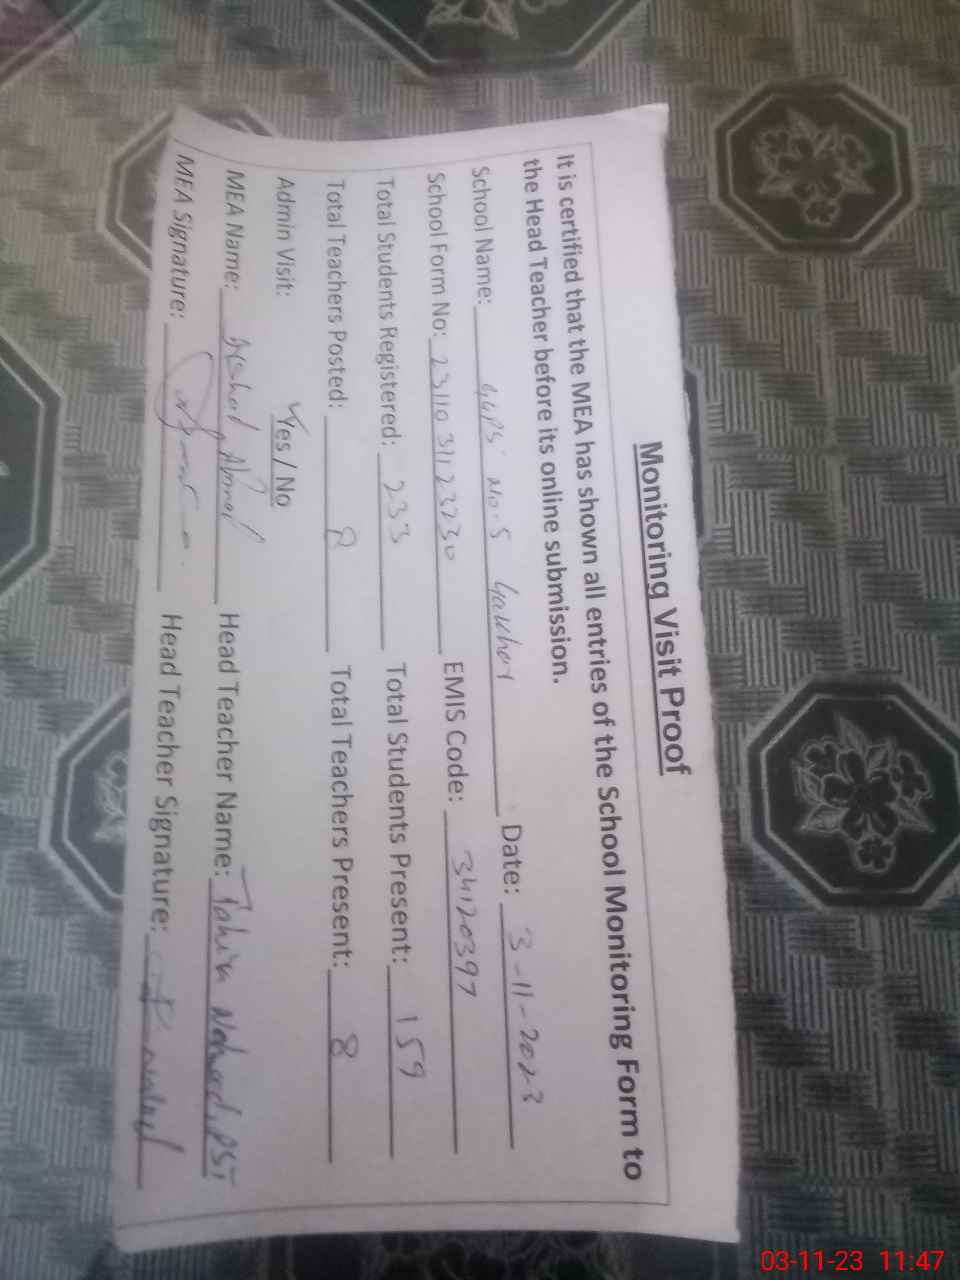 Monitoring Visit Proof
It is certified that the MEA has shown all entries of the School Monitoring Form to
the Head Teacher before its online submission.
School Name: GGPS No.5 Date: 3-11-2023
School Form No: 231103112 EMIS Code: 34120397
Total Students Registered: 233 Total Students Present: 159
Total Teachers Posted: 8 Total Teachers Present: 8
Admin Visit: Yes / No
MEA Name: Head Teacher Name: PST
MEA Signature: Head Teacher Signature:
03-11-23 11:47